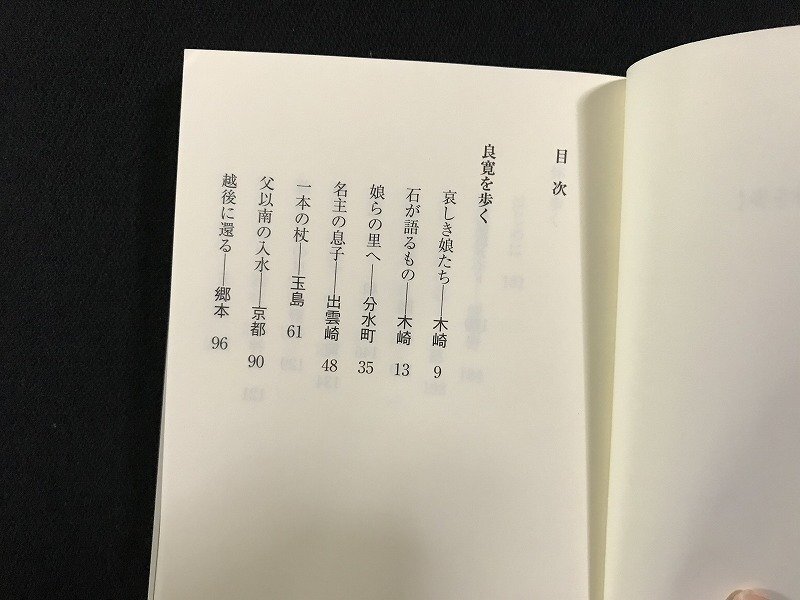 目次
良寛を歩く
哀しき娘たち――木崎 9
石が語るもの――木崎 13
娘らの里へ――分水町 35
名主の息子――出雲崎 48
一本の杖――玉島 61
父以南の入水――京都 90
越後に還る――郷本 96